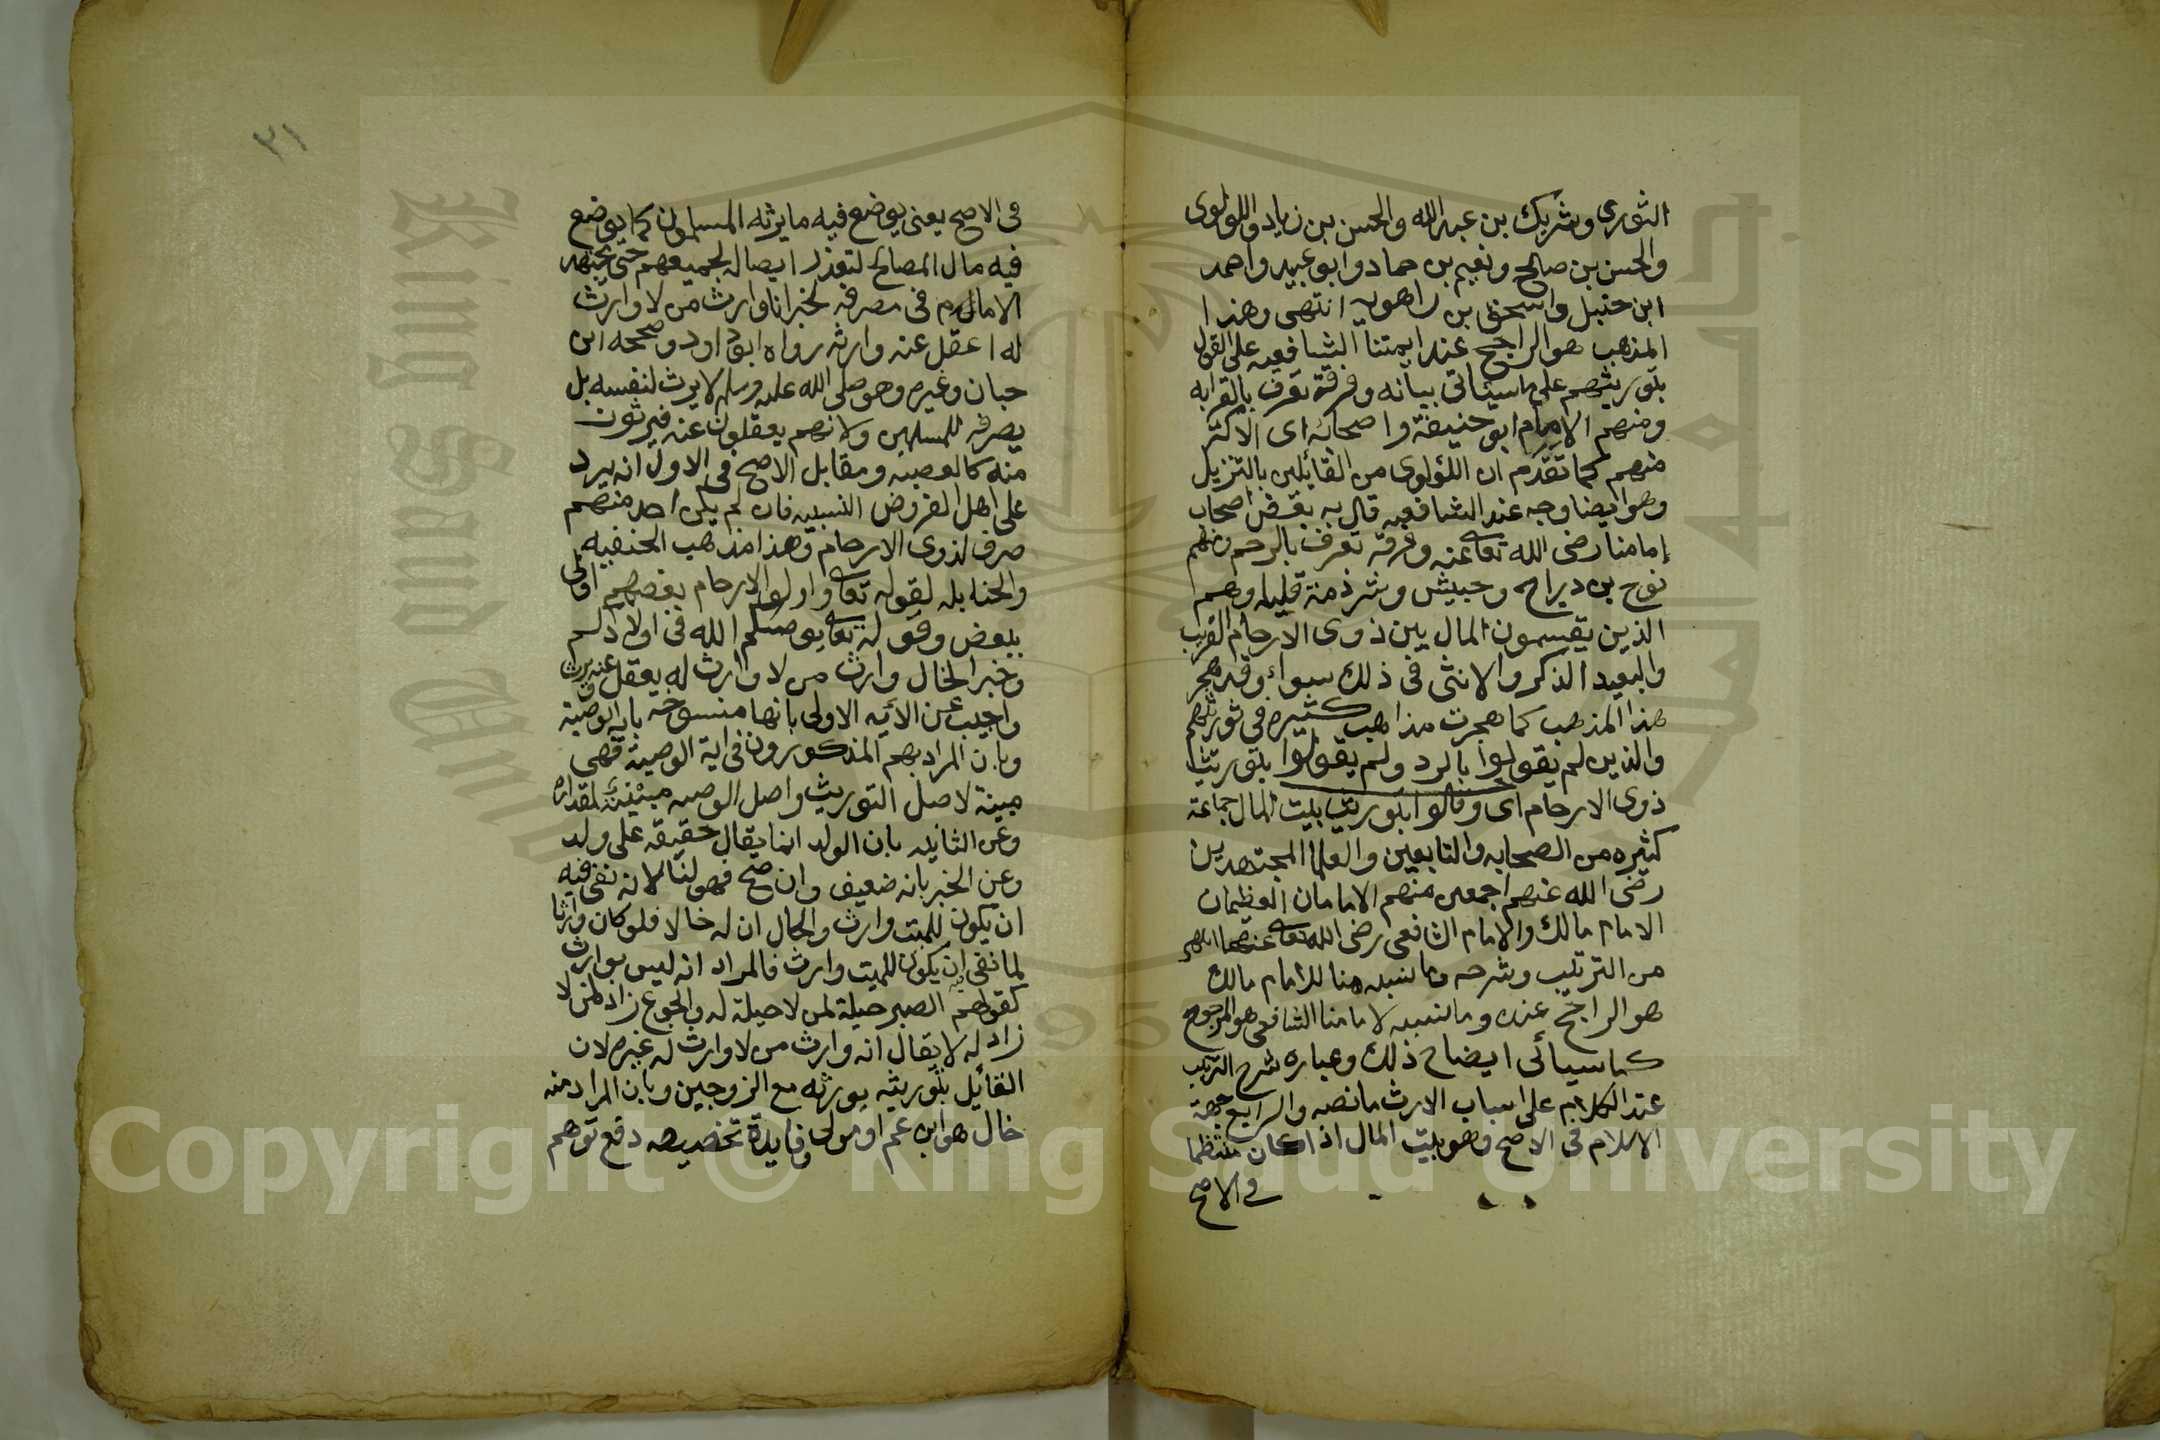 الثوري وشريك بن عبد الله والحسن بن زياد واللولوى
والحسن بن صالح ونعيم بن حماد وابو عبيد واحمد
ابن حنبل واسحق بن راهويه انتهى وهذا
المذهب هو الراجح عند ايمتنا الشافعيه على القول
بتوريثهم على ماسيئاتى بيانه وفرقة تعرف بالقرابه
ومنهم الامام ابو حنيفة واصحابه اى الاكثر
منهم كما تقدم ان اللؤلوى من القائلين بالتنزيل
وهو ايضا وجه عند الشافعيه قال به بعض اصحاب
إمامنا رضى الله تعالى عنه وفرقة تعرف بالرحم ومنهم
نوح بن دراح وحبيش وشرذمة قليله وهم
الذين يقسمون المال بين ذوى الارحام القريب
والبعيد الذكر والانثى فى ذلك سواء وقد هجر
هذا المذهب كما هجرت مذاهب كثيره فى توريثهم
والذين لم يقولوا بالرد ولم يقولوا بتوريث
ذوى الارحام اى وقالوا بتوريث بيت المال جماعة
كثيره من الصحابه والتابعين والعلما المجتهدين
رضى الله عنهم اجمعين منهم الامامان العظيمان
الامام مالك والامام الشافعى رضى الله تعالى عنهما انتهى
من الترتيب وشرحه وما نسبه هنا للامام مالك
هو الراجح عنده وما نسبه لامامنا الشافعى هو المرجوح
كما سيائى ايضاح ذلك وعباره شرح الترتيب
عند الكلام على اسباب الارث ما نصه والرابع جهة
الاسلام فى الاصح وهو بيت المال اذا كان منتظما
فى الاصح
٢١
فى الاصح يعنى يوضع فيه ما يرثه المسلمون كما يوضع
فيه مال المصالح لتعذر ايصاله لجميعهم حتى يجتهد
الامام فى مصرفه لخبر انا وارث من لا وارث
له اعقل عنه وارثه رواه ابو داود وصححه ابن
حبان وغيره وهو صلى الله عليه وسلم لا يرث لنفسه بل
يصرفه للمسلمين ولانهم يعقلون عنه فيرثون
منه كالعصبه ومقابل الاصح فى الاول انه يرد
على اهل الفروض النسبيه فان لم يكن احد منهم
صرف لذوى الارحام وهذا مذهب الحنفيه
والحنابله لقوله تعالى واولوا الارحام بعضهم اولى
ببعض وقوله تعالى يوصيكم الله فى اولادكم
وخبر الخال وارث من لا وارث له يعقل عنه ويرثه
واجيب عن الأيه الاولى بانها منسوخه بايه الوصية
وبان المراد بهم المذكورون فى اية الوصية فهى
مبينة لاصل التوريث واصل الوصيه مبينة لمقداره
وعن الثانيه بان الولد انما يقال حقيقه على ولد
وعن الخبر بانه ضعيف وان صح فهو لنا لانه نفى فيه
ان يكون للميت وارث والحال ان له خالا فلو كان وارثا
لما نفى ان يكون للميت وارث فالمراد انه ليس بوارث
كقولهم الصبر حيلة لمن لا حيلة له والجوع زاد لمن لا
زاد له لا يقال انه وارث من لا وارث له غيره لان
القائيل بتوريثه يورثه مع الزوجين وبان المراد منه
خال هو ابن عم او مولى وفايدة تخصيصه دفع توهم
King Saud University
1957
Copyright © King Saud University